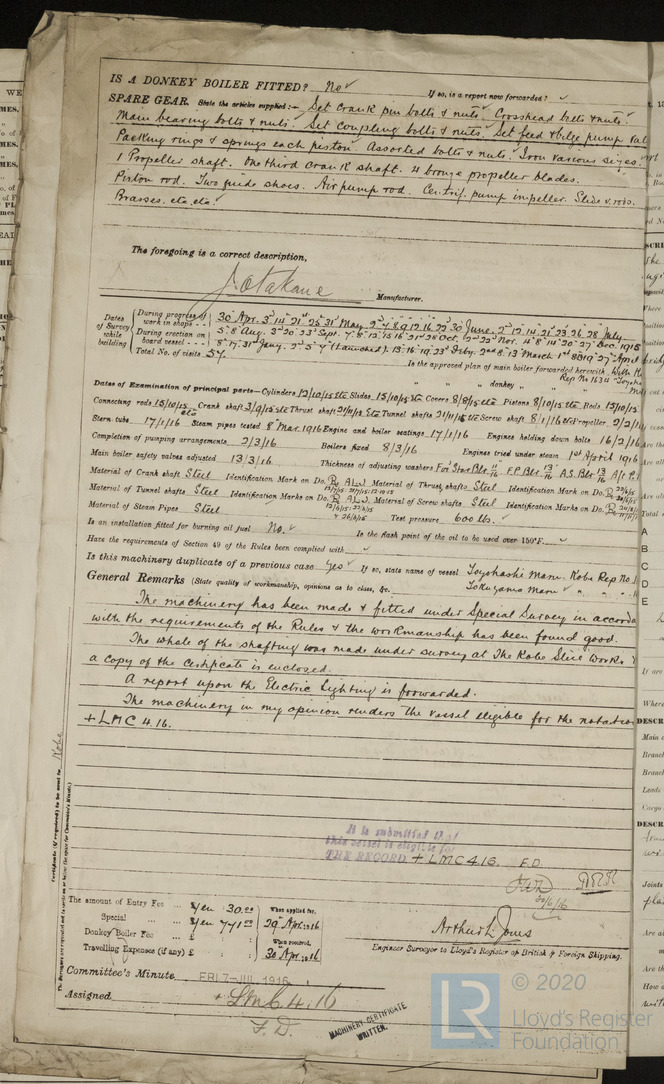 IS A DONKEY BOILER FITTED? No ✓ If so, is a report now forwarded? ✓
SPARE GEAR. State the articles supplied:— Set crank pin bolts & nuts. Crosshead bolts & nuts.
Main bearing bolts & nuts. Set coupling bolts & nuts. Set feed & bilge pump val
Packing rings & springs each piston. Assorted bolts & nuts. Iron various sizes.
1 Propeller shaft. One third crank shaft. 4 bronze propeller blades.
Piston rod. Two guide shoes. Air pump rod. Centrif. pump impeller. Slide v. rods.
Brasses. etc. etc.
The foregoing is a correct description,
Manufacturer.
Dates of Survey while building
During progress of work in shops - - 30 Apr. 3 14 21 25 31 May. 2 4 8 9 12 16 22 30 June. 2 12 14 21 23 26 28 July
During erection on board vessel - - - 5 8 Aug. 3 20 23 Sept. 7 8 12 15 16 21 28 Oct. 2 22 Nov. 4 8 14 20 27 Dec. 1915
8 17 31 Jany. 2 5 7 (Launched). 13 16 19 23 Febry. 2 8 13 March 1 8 19 27 April
Total No. of visits 57.
Is the approved plan of main boiler forwarded herewith
" " " donkey " "
Dates of Examination of principal parts—Cylinders 12/10/15 etc Slides 15/10/15 etc Covers 8/8/15 etc Pistons 8/10/15 etc Rods 15/10/15
Connecting rods 15/10/15 etc Crank shaft 3/9/15 etc Thrust shaft 21/11/15 etc Tunnel shafts 21/11/15 etc Screw shaft 8/1/16 etc Propeller 2/2/16
Stern tube 17/1/16 Steam pipes tested 8 Mar. 1916 Engine and boiler seatings 17/1/16 Engines holding down bolts 16/2/16
Completion of pumping arrangements 2/3/16 Boilers fixed 8/3/16 Engines tried under steam 1st April 1916
Main boiler safety valves adjusted 13/3/16 Thickness of adjusting washers
Material of Crank shaft Steel Identification Mark on Do. Material of Thrust shafts Steel Identification Mark on Do.
Material of Tunnel shafts Steel Identification Marks on Do. Material of Screw shafts Steel Identification Marks on Do.
Material of Steam Pipes Steel Test pressure 600 lbs. ✓
Is an installation fitted for burning oil fuel No. ✓ Is the flash point of the oil to be used over 150°F. ✓
Have the requirements of Section 49 of the Rules been complied with ✓
Is this machinery duplicate of a previous case Yes ✓ If so, state name of vessel Toyohashi Maru. Kobe Rep No.
Tokuyama Maru ✓ " "
General Remarks (State quality of workmanship, opinions as to class, &c.
The machinery has been made & fitted under Special Survey in accorda
with the requirements of the Rules & the workmanship has been found good.
The whole of the shafting was made under survey at The Kobe Steel Works
a copy of the certificate is enclosed.
A report upon the Electric Lighting is forwarded.
The machinery in my opinion renders the vessel eligible for the notation
+ LMC 4.16.
It is submitted that
this vessel is eligible for
THE RECORD + LMC 4.16. F.D.
The amount of Entry Fee ... Yen 30.00 When applied for,
Special ... Yen 771.00 29 Apr. 1916
Donkey Boiler Fee ... £ When received,
Travelling Expenses (if any) £ 30 Apr. 1916
Arthur L. Jones
Engineer Surveyor to Lloyd's Register of British & Foreign Shipping.
Committee's Minute FRI. 7-JUL 1916
Assigned + LMC 4.16
F.D.
MACHINERY CERTIFICATE
WRITTEN.
Certificate (if required) to be sent to Kobe
LR
© 2020
Lloyd's Register
Foundation